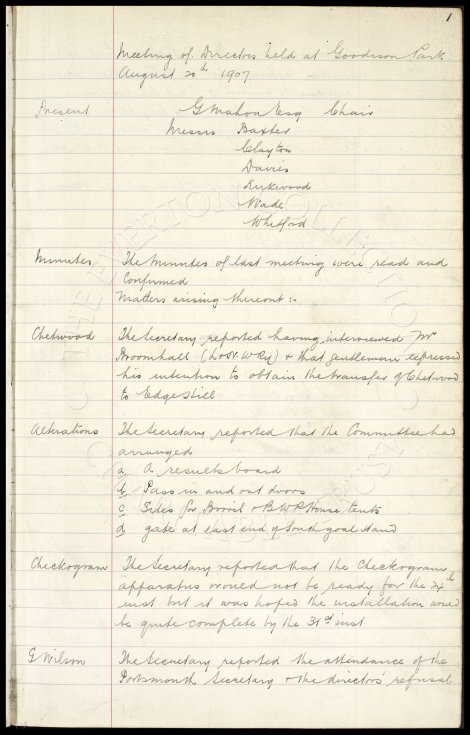 1
Meeting of Directors held at Goodison Park
August 20th 1907
Present G Mahon Esq Chair
Messrs Baxter
Clayton
Davies
Kirkwood
Wade
Whitford
Minutes The Minutes of last meeting were read and
Confirmed
Matters arising thereout :-
Chetwood The Secretary reported having interviewed Mr
Broomhall (L & N. W Ry) & that gentleman expressed
his intention to obtain the transfer of Chetwood
to Edge Hill
Alterations The Secretary reported that the Committee had
arranged
a A results board
b Pass in and out doors
c Sites for Bovril & B W P House tents
d gate at east end of South goal stand
Checkogram The Secretary reported that the Checkogram
apparatus would not be ready for the 24th
inst but it was hoped the installation would
be quite complete by the 31st inst
G Wilson The Secretary reported the attendance of the
Portsmouth Secretary & the directors' refusal
THE EVERTON COLLECTION
TRUST